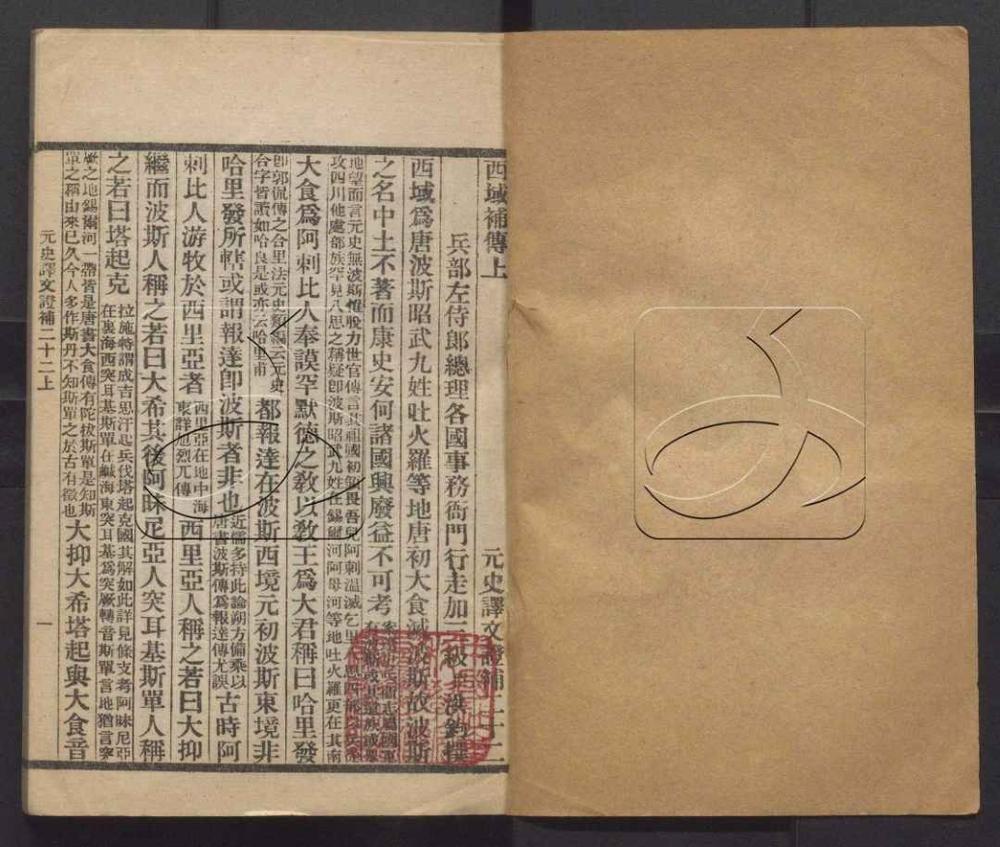 西域補傳上 元史譯文證補二十二
兵部左侍郎總理各國事務衙門行走加三級洪鈞撰
西域爲唐波斯昭武九姓吐火羅等地唐初大食滅波斯故波斯
之名中土不著而康史安何諸國興廢益不可考
地望而言元史無波斯惟脫力世官傳言其祖國初領畏吾兒阿剌溫滅乞里
攻四川他處部族罕見八思之稱疑卽波斯昭武九姓在錫爾河阿母河等地吐火羅更在其南
大食爲阿剌比人奉謨罕默德之敎以敎王爲大君稱曰哈里發
卽郭侃傳之合里法元史類編云元史
合字皆讀如哈良是或亦云哈里甫
都報達在波斯西境元初波斯東境非
哈里發所轄或謂報達卽波斯者非也
近儒多持此論朔方備乘以
唐書波斯傳爲報達傳尤誤
古時阿
剌比人游牧於西里亞者
西里亞在地中海
東詳旭烈兀傳
西里亞人稱之若曰大抑
繼而波斯人稱之若曰大希其後阿昧尼亞人突耳基斯單人稱
之若曰塔起克
拉施特謂成吉思汗起兵伐塔起克國其解如此詳見條支考阿昧尼亞
在裏海西突耳基斯單在鹹海東突耳基爲突厥轉音斯單言地猶言突
厥之地錫爾河一帶皆是唐書大食傳有陀拔斯單是知斯
單之稱由來已久今人多作斯丹不知斯單之於古有徵也
大抑大希塔起與大食音
元史譯文證補二十二上
一